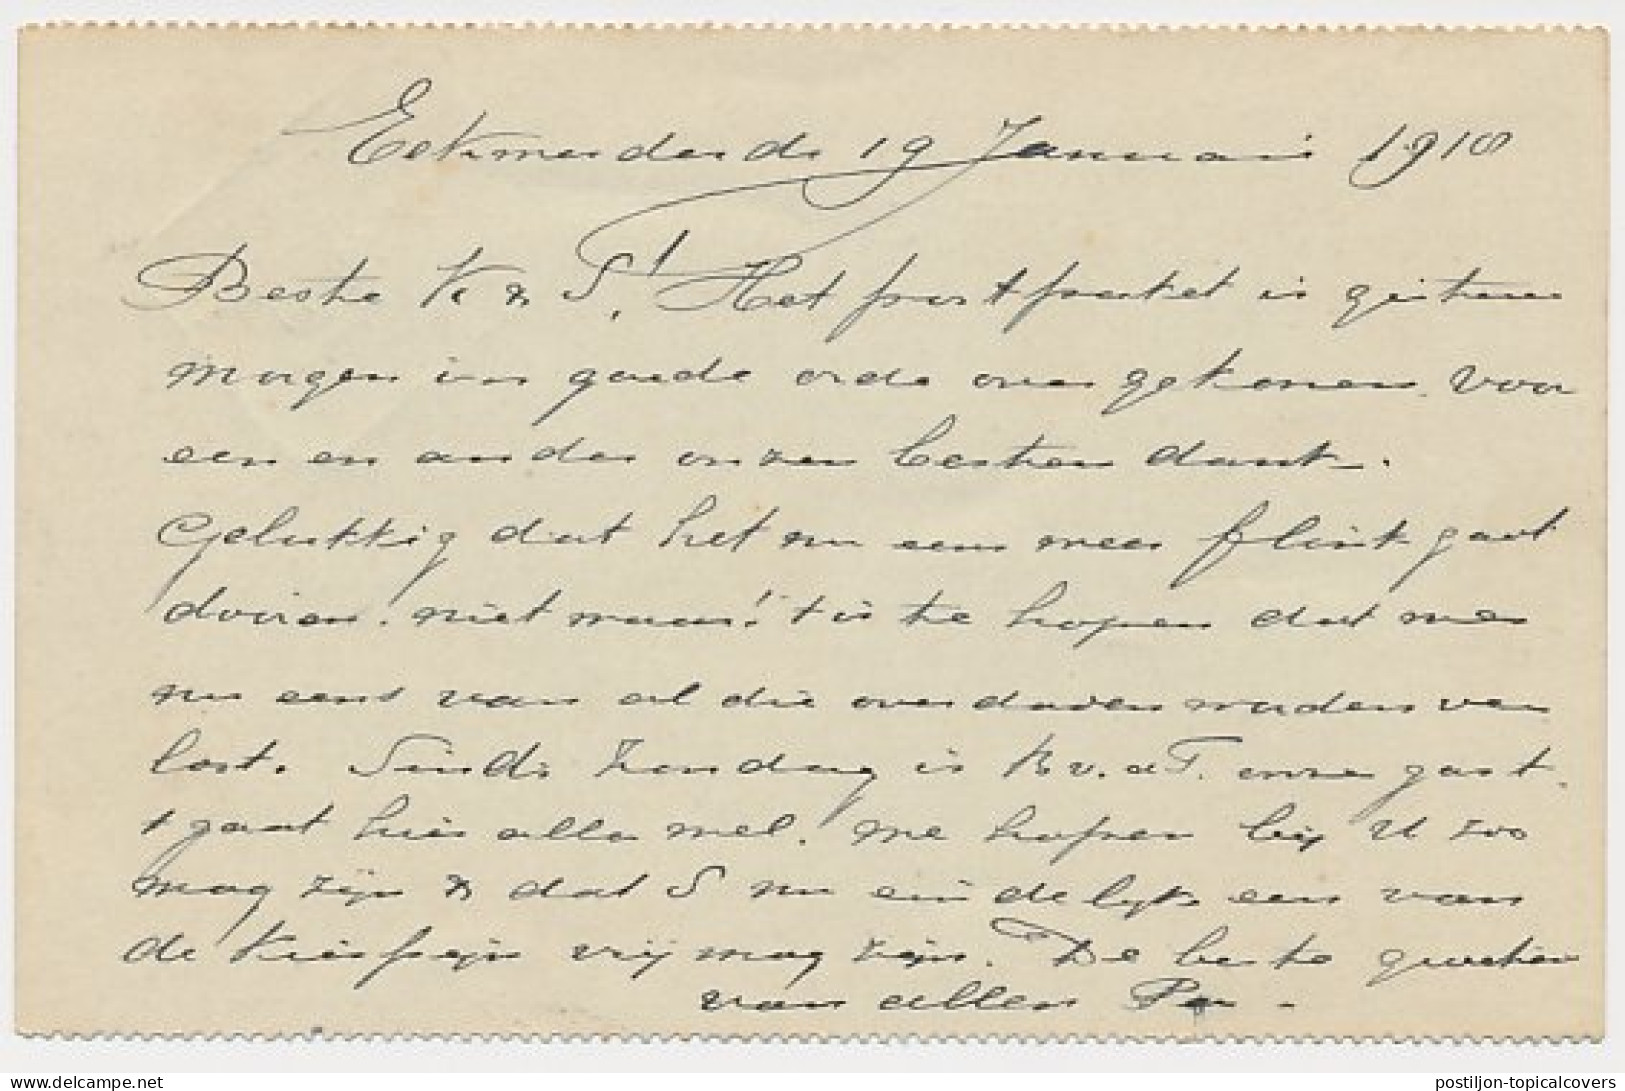 Eexmerder de 19 Januari 1918
Beste K & S! Het postpakket is gisteren
morgen in goede orde overgekomen. voor
een en ander onzen besten dank.
Gelukkig dat het nu eens weer flink gaat
dooien. niet waar! t is te hopen dat we
nu eens van al die overdreven worden ver
lost. Sinds Zondag is K v. d T. onze gast.
t gaat hier alles wel. We hopen bij U zoo
mag zijn & dat S nu eindelijk eens van
de kiespijn vrij mag zijn. De beste groeten
van allen Pa -
postiljon-topicalcovers
delcampe.net